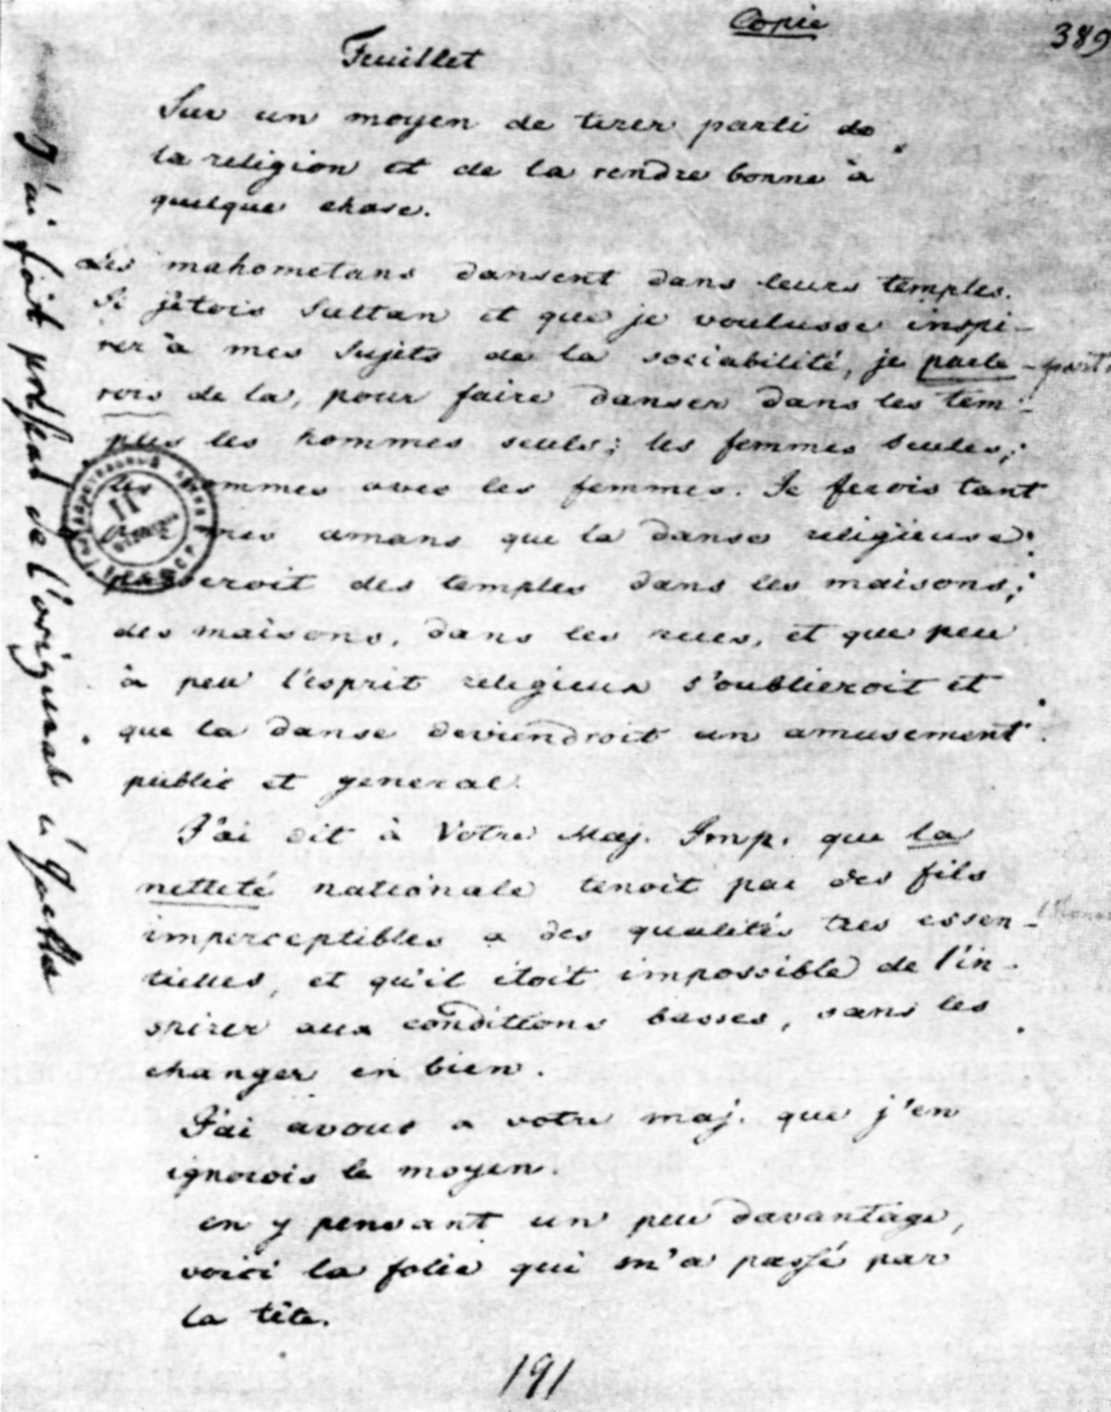 Copie
389
Feuillet
Sur un moyen de tirer parti de
la religion et de la rendre bonne à
quelque chose.
Les mahometans dansent dans leurs temples.
Si j'étois Sultan et que je voulusse inspi-
rer à mes Sujets de la sociabilité, je parle-
rois de la, pour faire danser dans les tem-
ples les hommes seuls; les femmes seules;
les hommes avec les femmes. Je ferois tant
mes amans que la danse religieuse
passeroit des temples dans les maisons;
des maisons, dans les rues, et que peu
à peu l'esprit religieux s'oublieroit et
que la danse deviendroit un amusement
public et general.
J'ai dit à Votre Maj. Imp. que la
netteté nationale tenoit par des fils
imperceptibles a des qualités tres essen-
tielles, et qu'il étoit impossible de l'in-
spirer aux conditions basses, sans les
changer en bien.
J'ai avoué a votre maj. que j'en
ignorois le moyen.
en y pensant un peu davantage,
voici la folie qui m'a passé par
la tête.
191
J'ai fait présent de l'original à Goethe